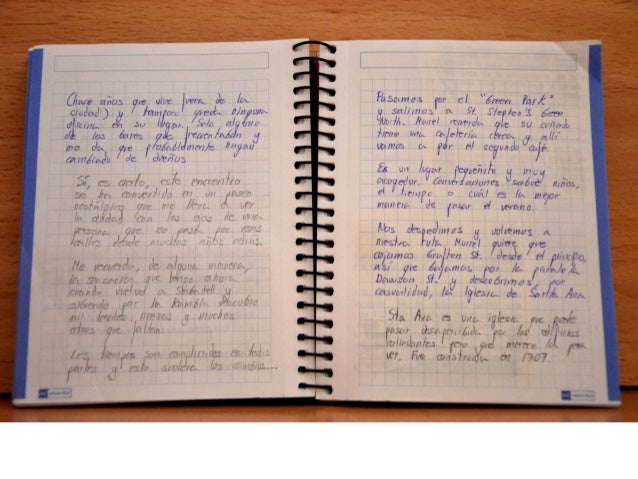 (hace años que vive fuera de la
ciudad) y tampoco queda ninguna
oficina en su lugar. Solo alguno
de los bares que frecuentaban y
me da, que probablemente hayan
cambiado de dueños
Sí, es cierto, este encuentro
se ha convertido en un paseo
nostálgico que me lleva a ver
la ciudad con los ojos de una
persona que no pasa por esas
calles desde muchos años atrás.
Me recuerdo, de alguna manera,
la sensación que tengo ahora
cuando vuelvo a Sabadell y
subiendo por la Rambla descubro
mil locales nuevos y muchos
otros que faltan.
Los tiempos son complicados en todas
partes y esto acelera los cambios...
Pasamos por el "Green Park"
y salimos a St. Stephen's Green
North. Muriel recuerda que su cuñado
tiene una cafetería cerca y allí
vamos a por el segundo café.
Es un lugar pequeñito y muy
acogedor. Conversaciones sobre niños,
el tiempo o cuál es la mejor
manera de pasar el verano.
Nos despedimos y volvemos a
nuestra ruta. Muriel quiere que
cojamos Grafton St. desde el principio,
así que bajamos por la paralela
Dawson St. y descubrimos por
casualidad, la Iglesia de Santa Ana
Sta Ana es una iglesia que puede
pasar desapercibida por los edificios
colindantes pero que merece la pena
ver. Fue construida en 1707.